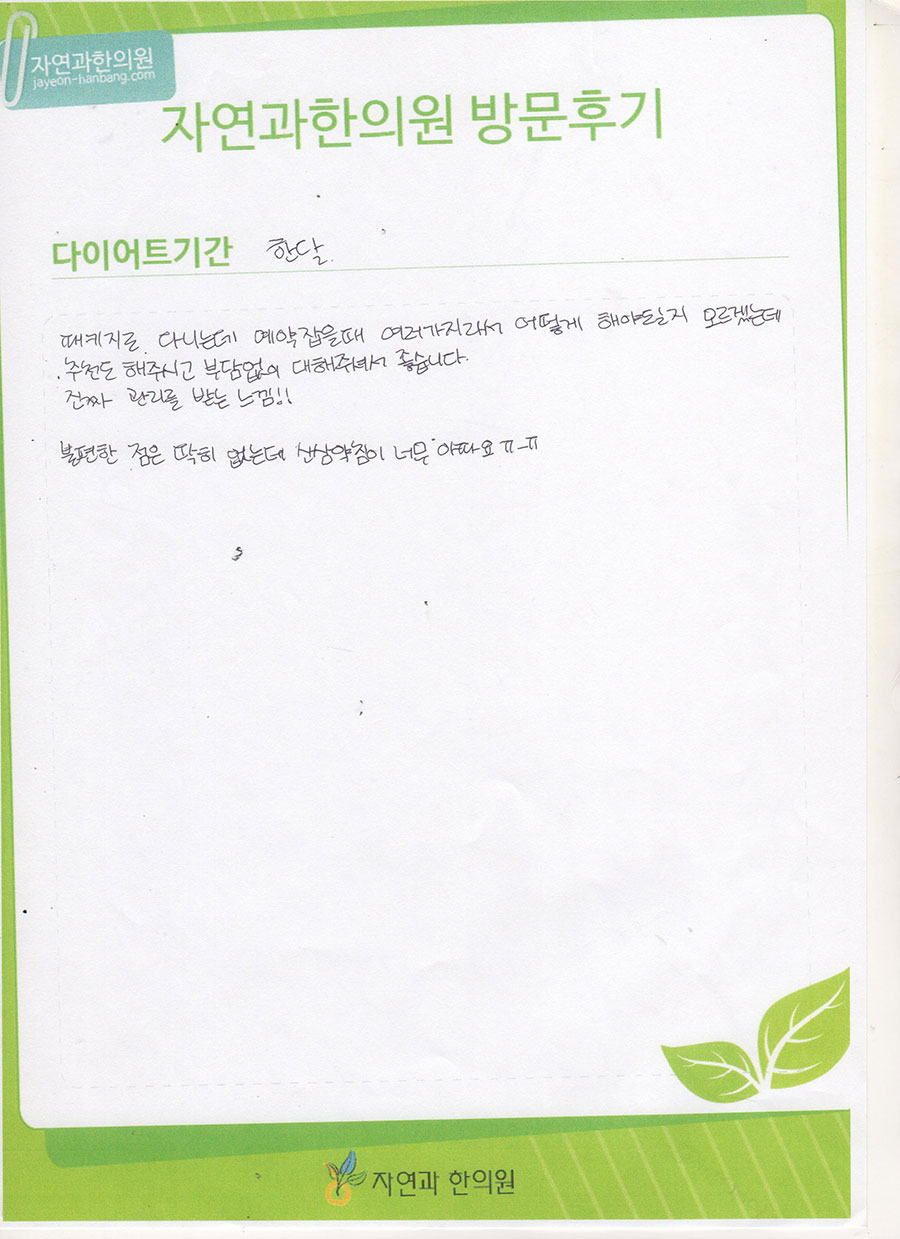 자연과한의원
jayeon-hanbang.com
자연과한의원 방문후기
다이어트기간 한달.
패키지로 다니는데 예약잡을때 여러가지라서 어떻게 해야될지 모르겠는데
추천도 해주시고 부담없이 대해주셔서 좋습니다.
진짜 관리를 받는 느낌!!
불편한 점은 딱히 없는데 산삼약침이 너무 아파요 ㅠ_ㅠ
자연과 한의원